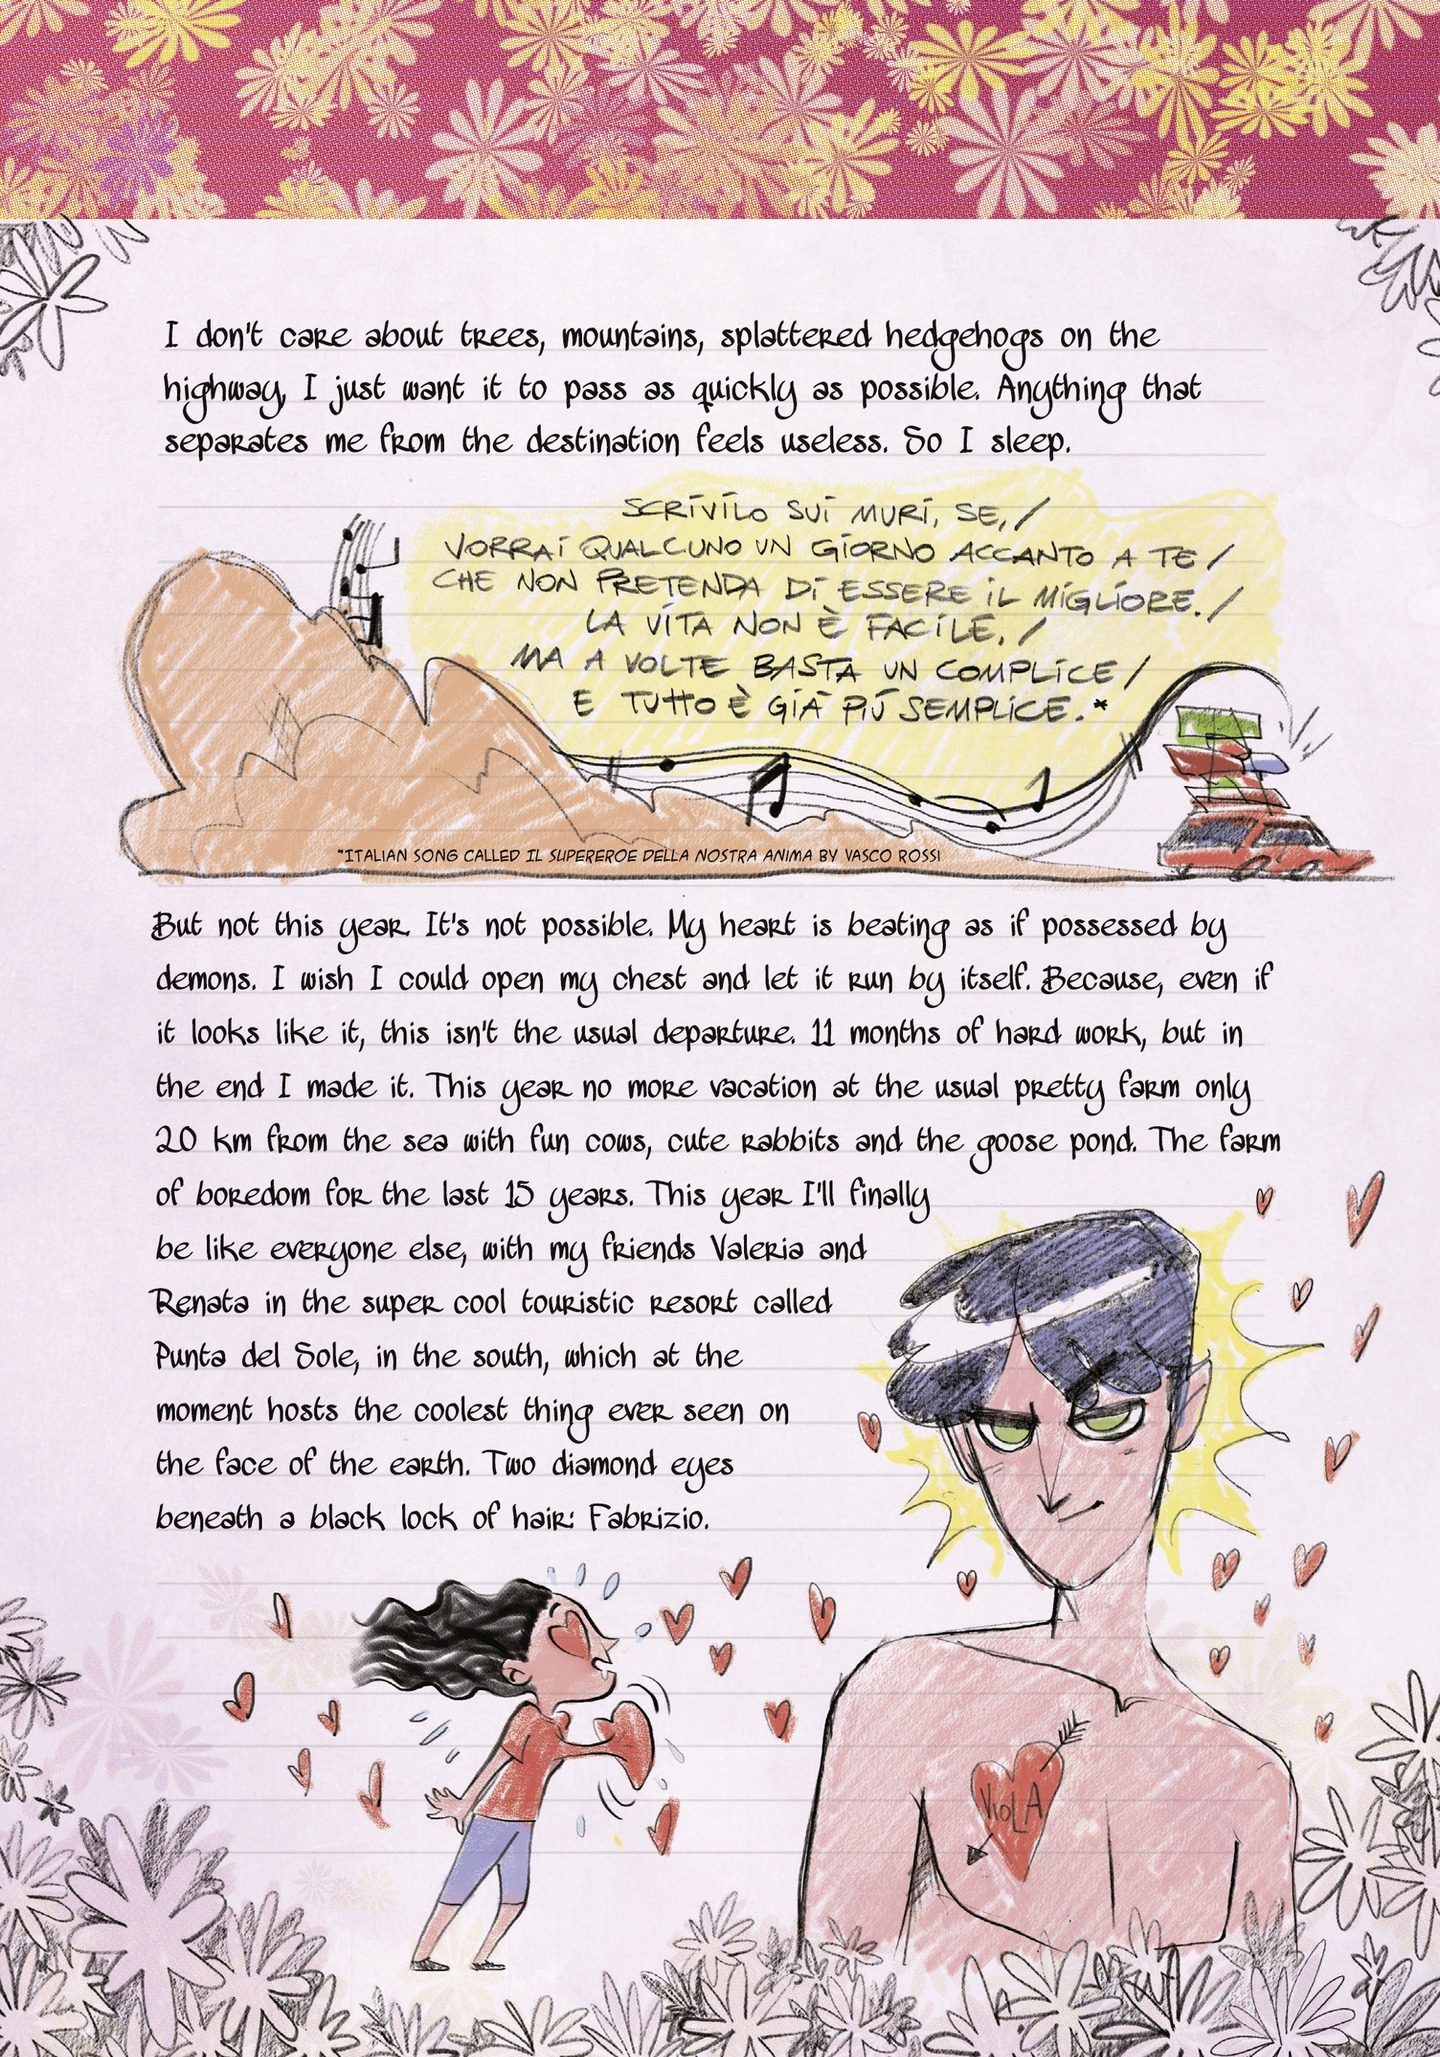 I don't care about trees, mountains, splattered hedgehogs on the
highway, I just want it to pass as quickly as possible. Anything that
separates me from the destination feels useless. So I sleep.
SCRIVILO SUI MURI, SE, /
VORRAI QUALCUNO UN GIORNO ACCANTO A TE /
CHE NON PRETENDA DI ESSERE IL MIGLIORE. /
LA VITA NON È FACILE, /
MA A VOLTE BASTA UN COMPLICE /
E TUTTO È GIÀ PIÚ SEMPLICE. *
*ITALIAN SONG CALLED IL SUPEREROE DELLA NOSTRA ANIMA BY VASCO ROSSI
But not this year. It's not possible. My heart is beating as if possessed by
demons. I wish I could open my chest and let it run by itself. Because, even if
it looks like it, this isn't the usual departure. 11 months of hard work, but in
the end I made it. This year no more vacation at the usual pretty farm only
20 km from the sea with fun cows, cute rabbits and the goose pond. The farm
of boredom for the last 15 years. This year I'll finally
be like everyone else, with my friends Valeria and
Renata in the super cool touristic resort called
Punta del Sole, in the south, which at the
moment hosts the coolest thing ever seen on
the face of the earth. Two diamond eyes
beneath a black lock of hair: Fabrizio.
VIOLA